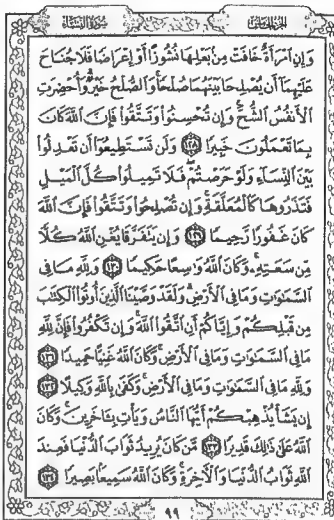 الجزء الخامس سورة النساء
وَإِنِ ٱمْرَأَةٌ خَافَتْ مِنۢ بَعْلِهَا نُشُوزًا أَوْ إِعْرَاضًا فَلَا جُنَاحَ
عَلَيْهِمَآ أَن يُصْلِحَا بَيْنَهُمَا صُلْحًا وَٱلصُّلْحُ خَيْرٌ وَأُحْضِرَتِ
ٱلْأَنفُسُ ٱلشُّحَّ وَإِن تُحْسِنُوا۟ وَتَتَّقُوا۟ فَإِنَّ ٱللَّهَ كَانَ
بِمَا تَعْمَلُونَ خَبِيرًا ١٢٨ وَلَن تَسْتَطِيعُوٓا۟ أَن تَعْدِلُوا۟
بَيْنَ ٱلنِّسَآءِ وَلَوْ حَرَصْتُمْ فَلَا تَمِيلُوا۟ كُلَّ ٱلْمَيْلِ
فَتَذَرُوهَا كَٱلْمُعَلَّقَةِ وَإِن تُصْلِحُوا۟ وَتَتَّقُوا۟ فَإِنَّ ٱللَّهَ
كَانَ غَفُورًا رَّحِيمًا ١٢٩ وَإِن يَتَفَرَّقَا يُغْنِ ٱللَّهُ كُلًّا
مِّن سَعَتِهِۦ وَكَانَ ٱللَّهُ وَٰسِعًا حَكِيمًا ١٣٠ وَلِلَّهِ مَا فِى
ٱلسَّمَٰوَٰتِ وَمَا فِى ٱلْأَرْضِ وَلَقَدْ وَصَّيْنَا ٱلَّذِينَ أُوتُوا۟ ٱلْكِتَٰبَ
مِن قَبْلِكُمْ وَإِيَّاكُمْ أَنِ ٱتَّقُوا۟ ٱللَّهَ وَإِن تَكْفُرُوا۟ فَإِنَّ لِلَّهِ
مَا فِى ٱلسَّمَٰوَٰتِ وَمَا فِى ٱلْأَرْضِ وَكَانَ ٱللَّهُ غَنِيًّا حَمِيدًا ١٣١
وَلِلَّهِ مَا فِى ٱلسَّمَٰوَٰتِ وَمَا فِى ٱلْأَرْضِ وَكَفَىٰ بِٱللَّهِ وَكِيلًا ١٣٢
إِن يَشَأْ يُذْهِبْكُمْ أَيُّهَا ٱلنَّاسُ وَيَأْتِ بِـَٔاخَرِينَ وَكَانَ
ٱللَّهُ عَلَىٰ ذَٰلِكَ قَدِيرًا ١٣٣ مَّن كَانَ يُرِيدُ ثَوَابَ ٱلدُّنْيَا فَعِندَ
ٱللَّهِ ثَوَابُ ٱلدُّنْيَا وَٱلْأَخِرَةِ وَكَانَ ٱللَّهُ سَمِيعًۢا بَصِيرًا ١٣٤
٩٩